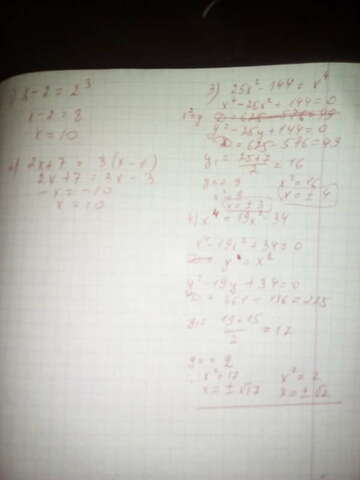 x-2 = 2³
x-2 = 8
x = 10
2x+7 = 3(x-1)
2x+7 = 3x-3
-x = -10
x = 10
3) 25x²-144 = x⁴
x⁴-25x²+144=0
x²=y
y²-25y+144=0
D = 625-576=49
y₁ = 25+7/2 = 16
x²=16
x=±4
x=±3
4) x⁴ = 19x²-34
x⁴-19x²+34=0
y = x²
y²-19y+34=0
D = 361-136=225
y₁ = 19+15/2 = 17
y₂ = 2
x²=17 x²=2
x=±√17 x=±√2